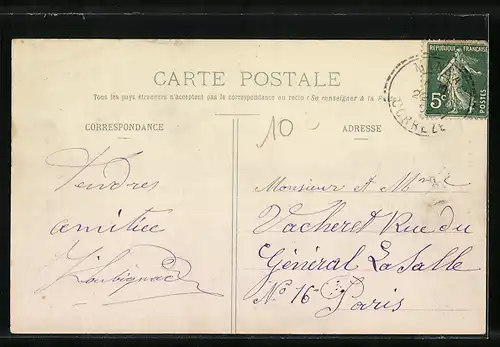 CARTE POSTALE
Tous les pays étrangers n'acceptent pas la correspondance au recto (Se renseigner à la
CORRESPONDANCE
ADRESSE
10
RÉPUBLIQUE FRANÇAISE
5c
POSTES
CORRÈZE
Tendres
amitiée
Monsieur et Mme
Vacheret Rue du
Général LaSalle
No 16 Paris